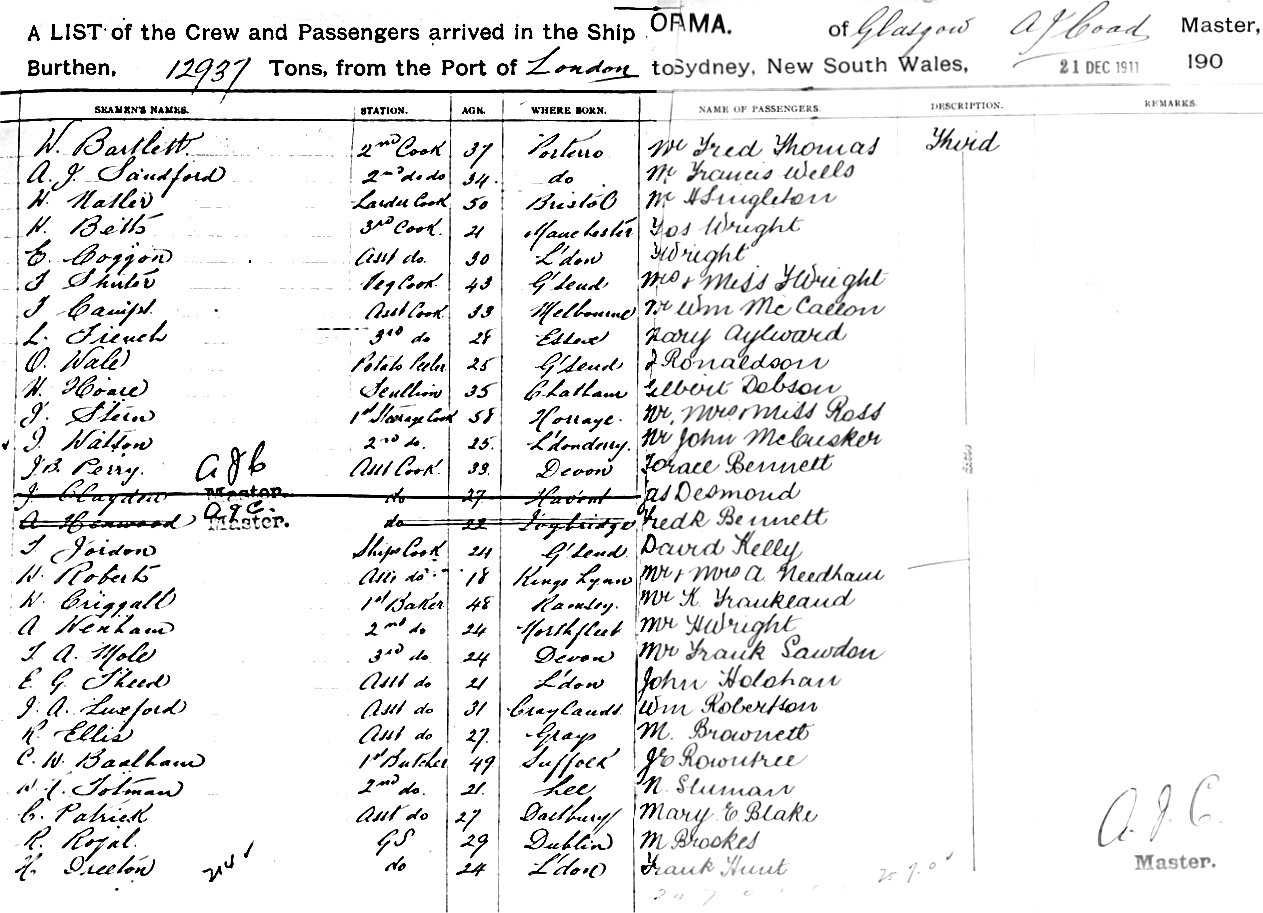 A LIST of the Crew and Passengers arrived in the Ship ORMA. of Glasgow A J Coad Master,
Burthen, 12937 Tons, from the Port of London to Sydney, New South Wales, 21 DEC 1911 190
SEAMEN'S NAMES. STATION. AGE. WHERE BORN. NAME OF PASSENGERS. DESCRIPTION. REMARKS.
W. Bartlett 2nd Cook 37 Mr Fred Thomas Third
A. J. Sandford 2nd do do 34 do Mr Francis Wells
Larder Cook 50 Bristol Mr H Singleton
H. Betts 3rd Cook 21 Manchester Jos Wright
E. Coggon Asst do. 30 L'don Wright
Veg Cook 43 G'send Mrs + Miss Wright
Asst Cook 33 Melbourne Mr Wm McCallon
L. French 3rd do 28 Essex Mary Aylward
O. Wale Potato Peeler 25 G'send J Ronaldson
H. Hoare Scullion 35 Chatham Gilbert Dobson
J. Stern 1st Steerage Cook 58 Mr, Mrs + Miss Ross
J. Watson 2nd do. 25 L'donderry. Mr John McCusker
J. B. Perry. A J C Asst Cook. 33 Devon Horace Bennett
J. Claydon Master. do 27 Havent Jas Desmond
A Henwood A J C. Master. do 22 Ivybridge Fredk Bennett
T Jordon Ships Cook 24 G'send David Kelly
H. Roberts Asst do 18 Kings Lynn Mr + Mrs A. Needham
W. Criggall 1st Baker 48 Ramsey. Mr K. Frankland
A Wenham 2nd do 24 Northfleet Mr H Wright
T A. Mole 3rd do. 24 Devon Mr Frank Sawdon
E. G. Sheed Asst do 21 L'don John Holohan
J. A. Luxford Asst do 31 Wm Robertson
R. Ellis Asst do 27 Grays M. Brownett
C. W. Baalham 1st Butcher 49 Suffolk J E Rowntree
Totman 2nd do. 21 Lee N. Sluman
C. Patrick Asst do 27 Mary E Blake
R. Royal. GS 29 Dublin M Brookes
H. do 24 L'don Frank Hunt
A. J. C.
Master.